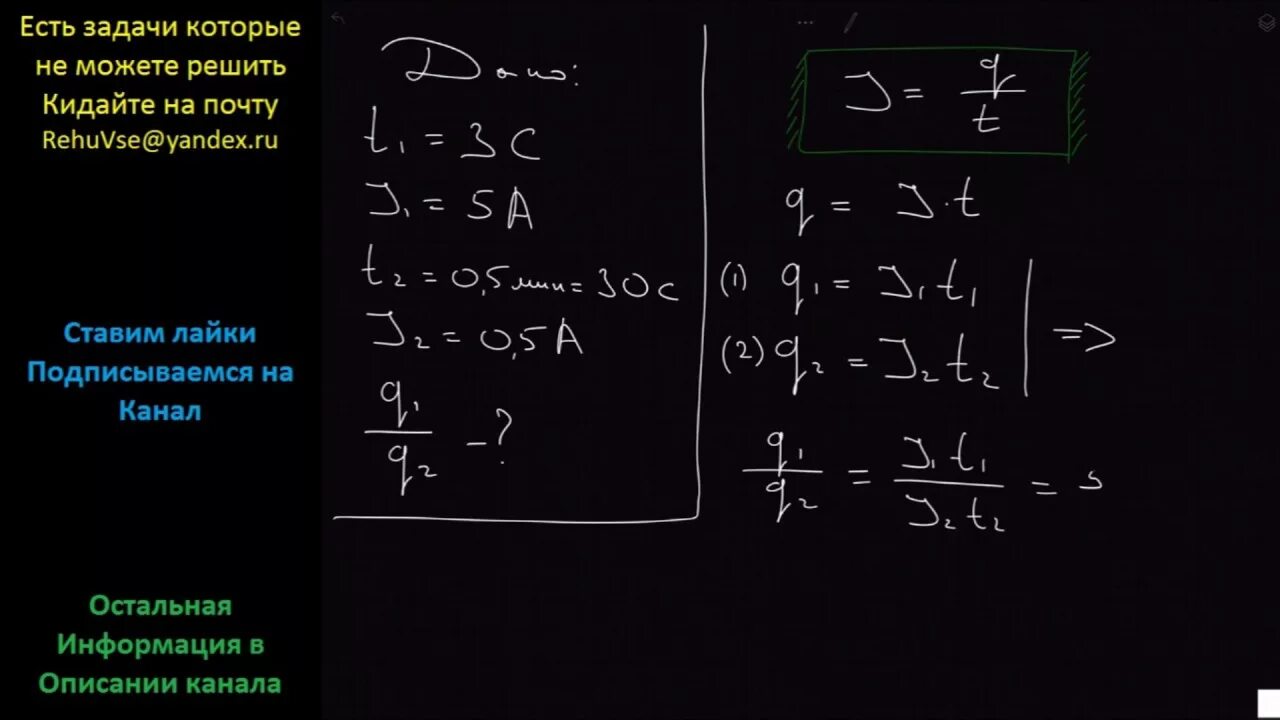 Есть задачи которые
не можете решить
Кидайте на почту
RehuVse@yandex.ru
Ставим лайки
Подписываемся на
Канал
Остальная
Информация в
Описании канала
Дано:
t₁ = 3 С
J₁ = 5 А
t₂ = 0,5 мин = 30 с
J₂ = 0,5 А
q₁/q₂ - ?
J = q/t
q = J · t
(1) q₁ = J₁ t₁
(2) q₂ = J₂ t₂ | =>
q₁/q₂ = J₁ t₁/J₂ t₂ =